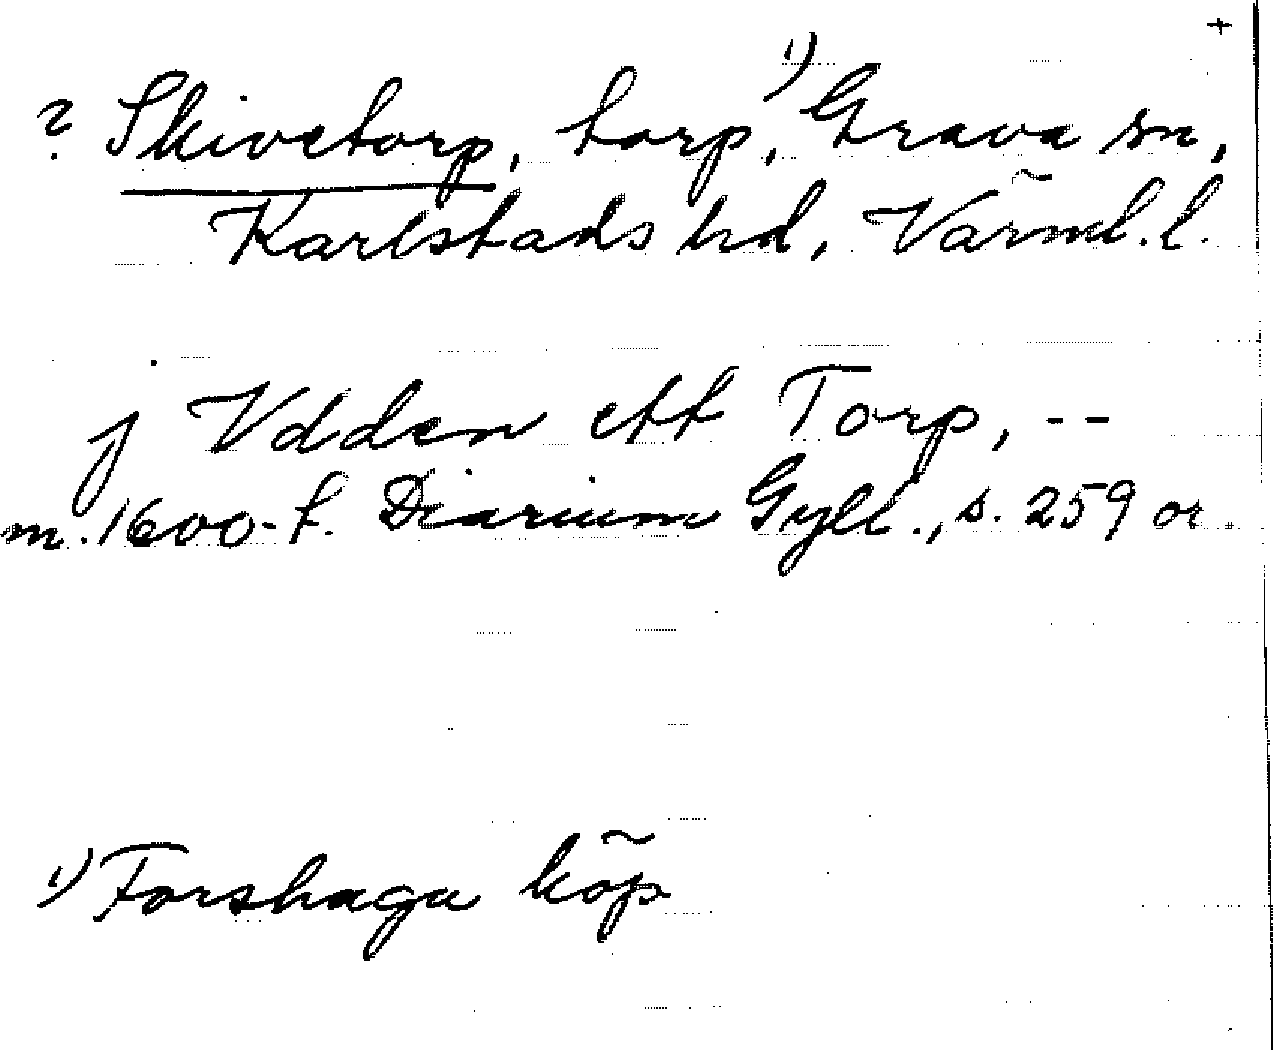 +
? Skivetorp, torp, ¹) Grava sn,
Karlstads hd, Värml. l.
j Vdden ett Torp, --
m. 1600-t. Diarium Gyll., s. 259 or
¹) Forshaga köp